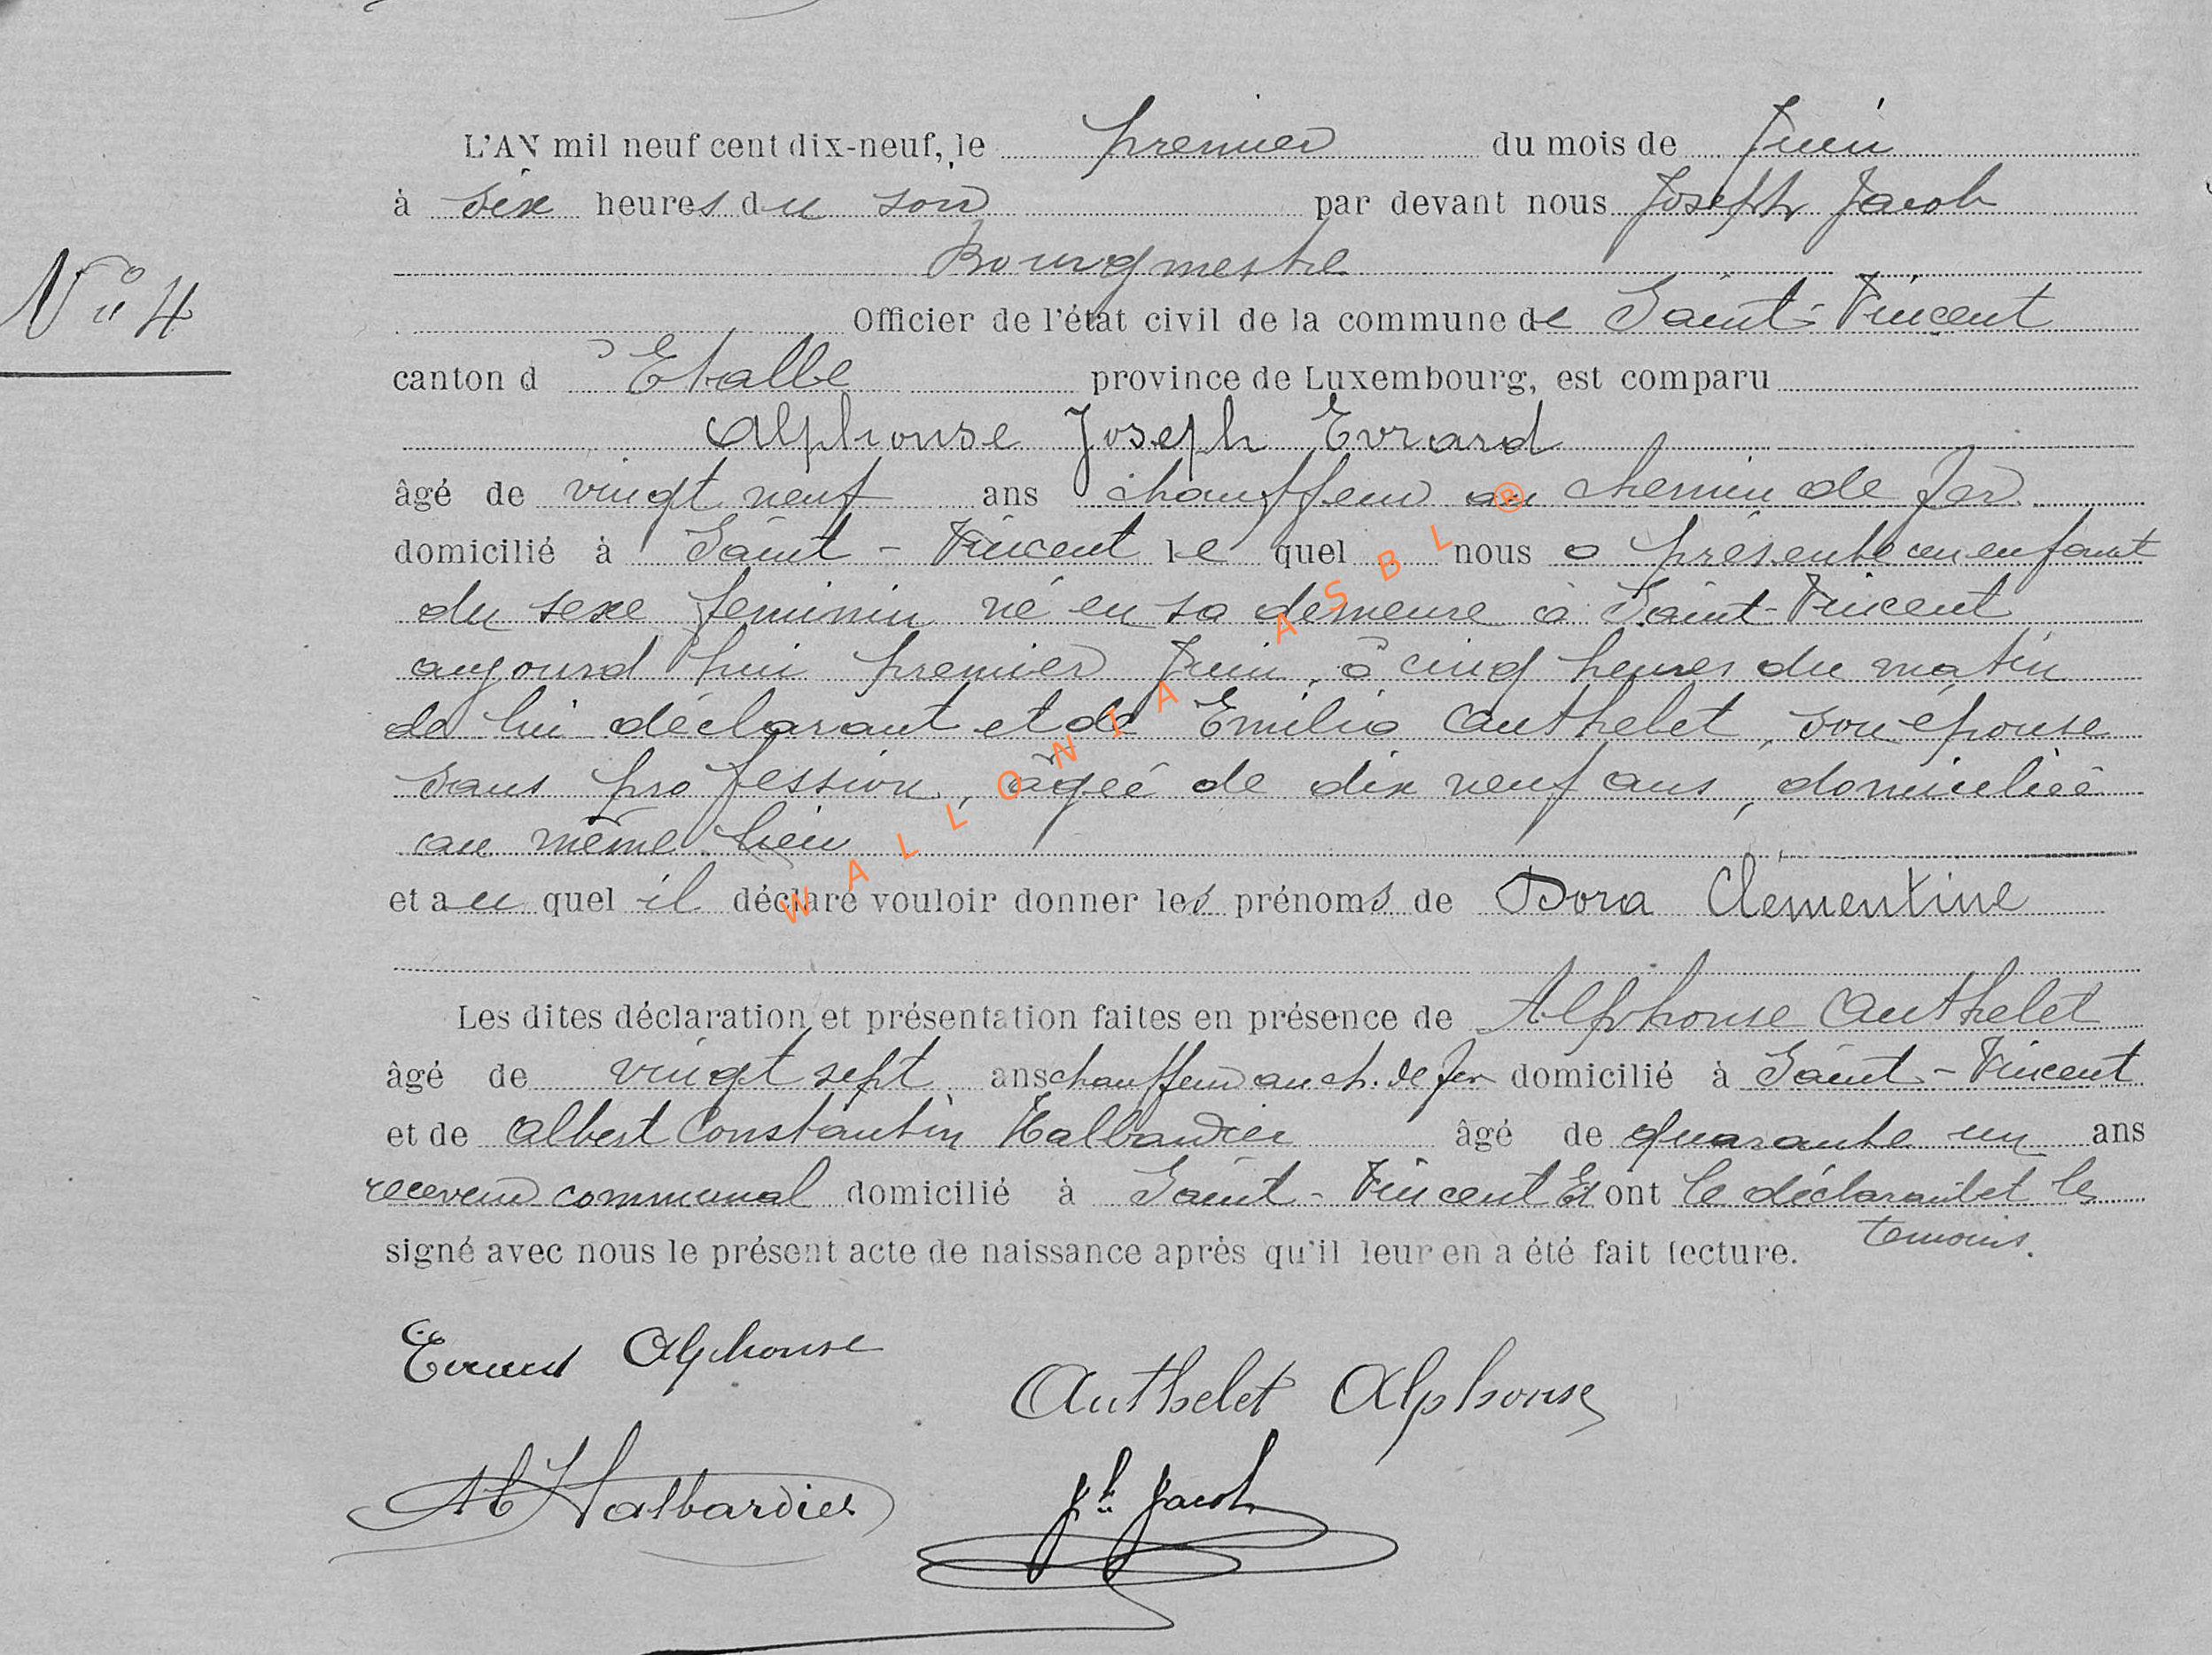 L'AN mil neuf cent dix-neuf, le premier du mois de Juin
à six heures du soir par devant nous Joseph Jacob
Bourgmestre
N° 4
Officier de l'état civil de la commune de Saint-Vincent
canton d'Etalle province de Luxembourg, est comparu
Alphonse Joseph Evrard
âgé de vingt neuf ans chauffeur au chemin de fer
domicilié à Saint-Vincent lequel nous a présenté un enfant
du sexe feminin né en sa demeure à Saint-Vincent
aujourd'hui premier Juin, à cinq heures du matin
de lui déclarant et de Emilia Authelet, son épouse
sans profession, âgée de dix neuf ans, domiciliée
au même lieu
et auquel il déclare vouloir donner les prénoms de Dora Clementine
Les dites déclaration et présentation faites en présence de Alphonse Authelet
âgé de vingt sept ans chauffeur au ch. de fer domicilié à Saint-Vincent
et de Albert Constantin Halbardier âgé de quarante un ans
receveur communal domicilié à Saint-Vincent Et ont le déclarant et les
temoins.
signé avec nous le présent acte de naissance après qu'il leur en a été fait lecture.
Evrard Alphonse
Authelet Alphonse
Alb Halbardier
Jh Jacob
WALLONIA ASBL ®